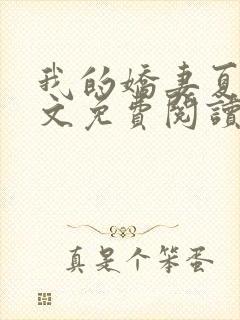 我的嬌妻夏
文免費閱讀
真是个笨蛋